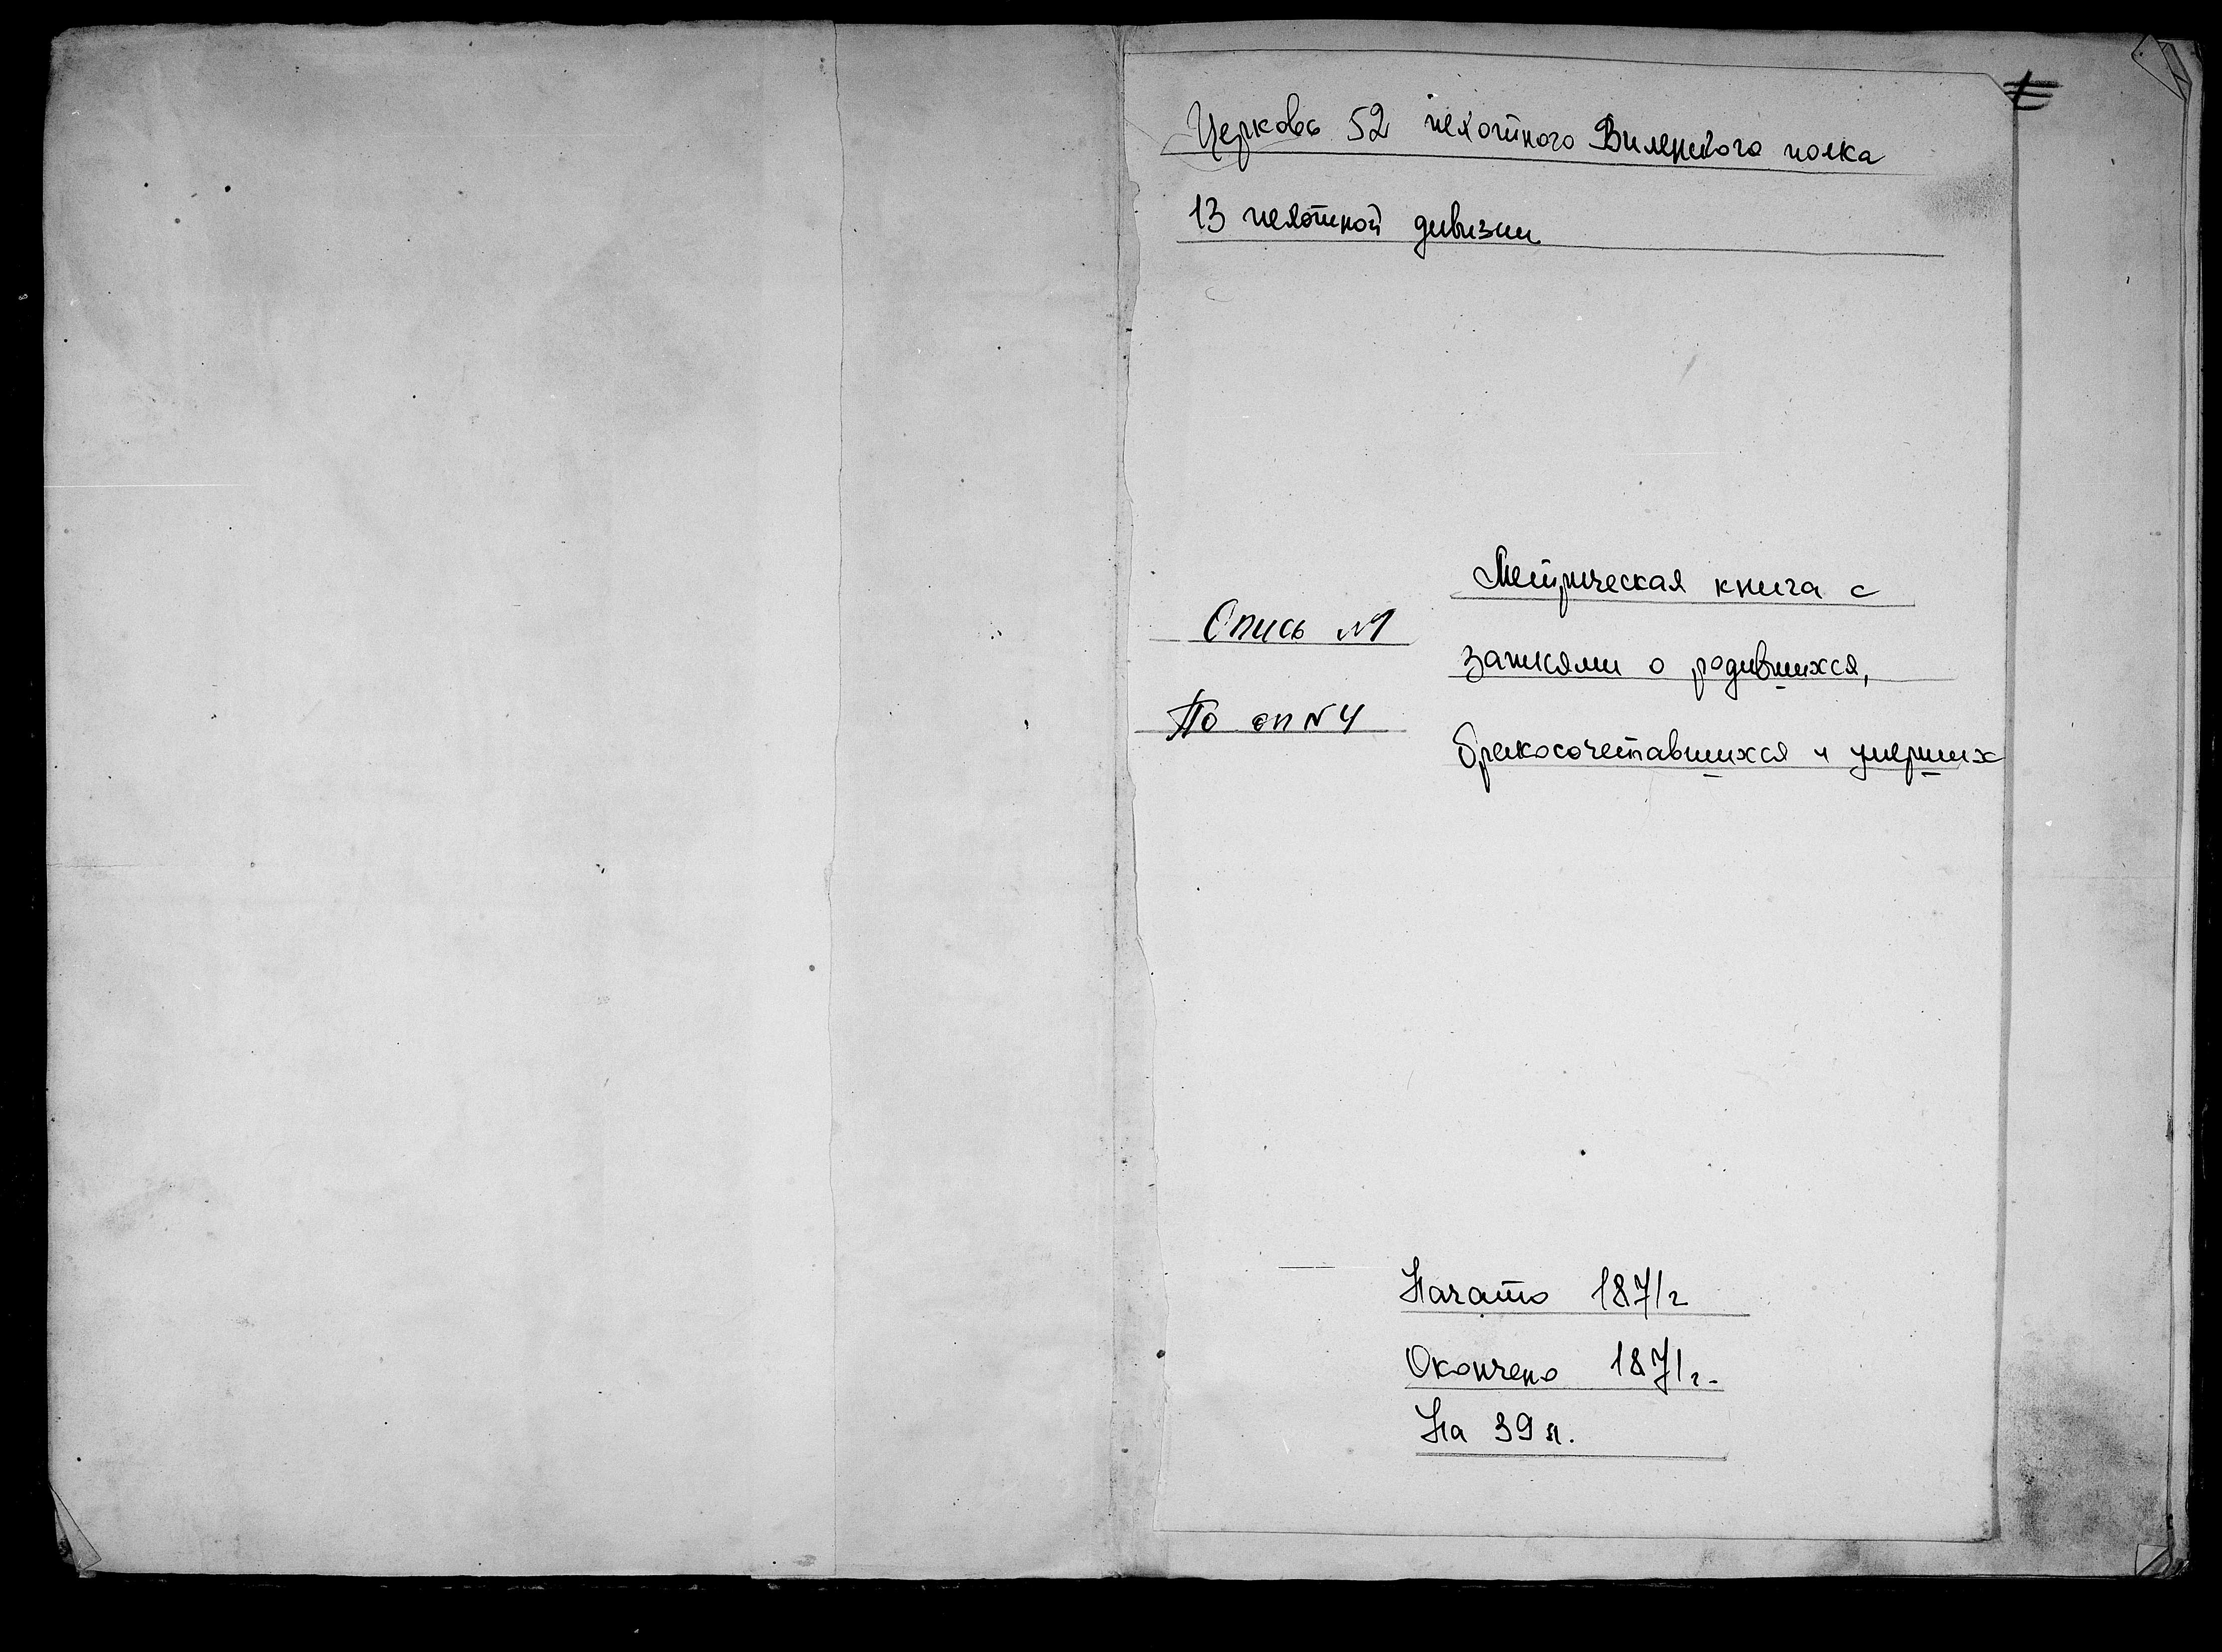 Церковь 52 пехотного Виленского полка
13 пехотной дивизии
Метрическая книга с
записями о родившихся,
бракосочетавшихся и умерших
Опись №1
По оп №4
Начато 1871г
Окончено 1871г.
На 39 л.